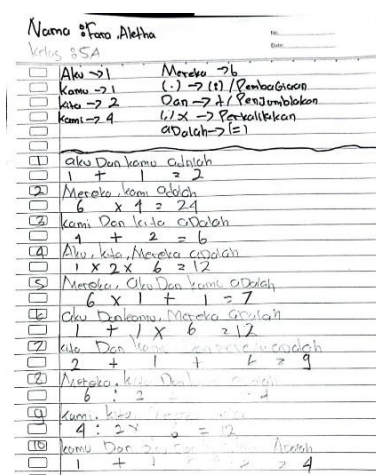 Nama : Fara Aletha
No.
Kelas : 5A
Date:
Aku → 1 Mereka → 6
Kamu → 1 (.) → (:) / Pembagiaan
kita → 2 Dan → + / Penjumblahan
Kami → 4 (,) x → Perkalikakan
aDalah → (=)
1 aku Dan kamu adalah
1 + 1 = 2
2 Mereka, kami adalah
6 x 4 = 24
3 Kami Dan kita aDalah
4 + 2 = 6
4 Aku, kita, Mereka aDalah
1 x 2 x 6 = 12
5 Mereka, aku Dan kami aDalah
6 x 1 + 1 = 7
6 aku Dan kamu, Mereka aDalah
1 + 1 x 6 = 12
7 kita Dan adalah
2 + 1 + 6 = 9
8 Mereka. kita Dan
6 : 2
9 kami. kita,
4 : 2 x 6 = 12
10 kamu Dan Adalah
1 + 1 = 4